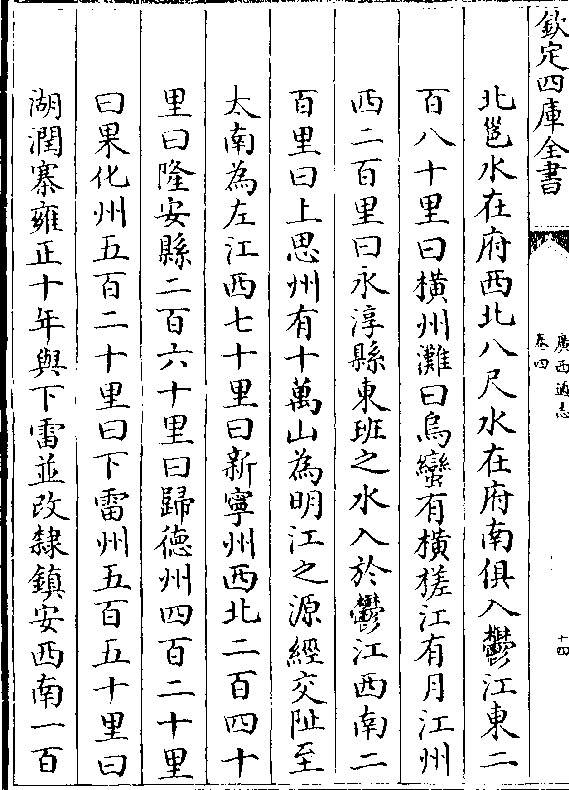 欽定四庫全書
廣西通志
卷四
十四
北邕水在府西北八尺水在府南俱入鬱江東二
百八十里曰橫州灘曰烏蠻有橫槎江有月江州
西二百里曰永淳縣東班之水入於鬱江西南二
百里曰上思州有十萬山為明江之源經交阯至
太南為左江西七十里曰新寧州西北二百四十
里曰隆安縣二百六十里曰歸德州四百二十里
曰果化州五百二十里曰下雷州五百五十里曰
湖潤寨雍正十年與下雷並改隸鎮安西南一百